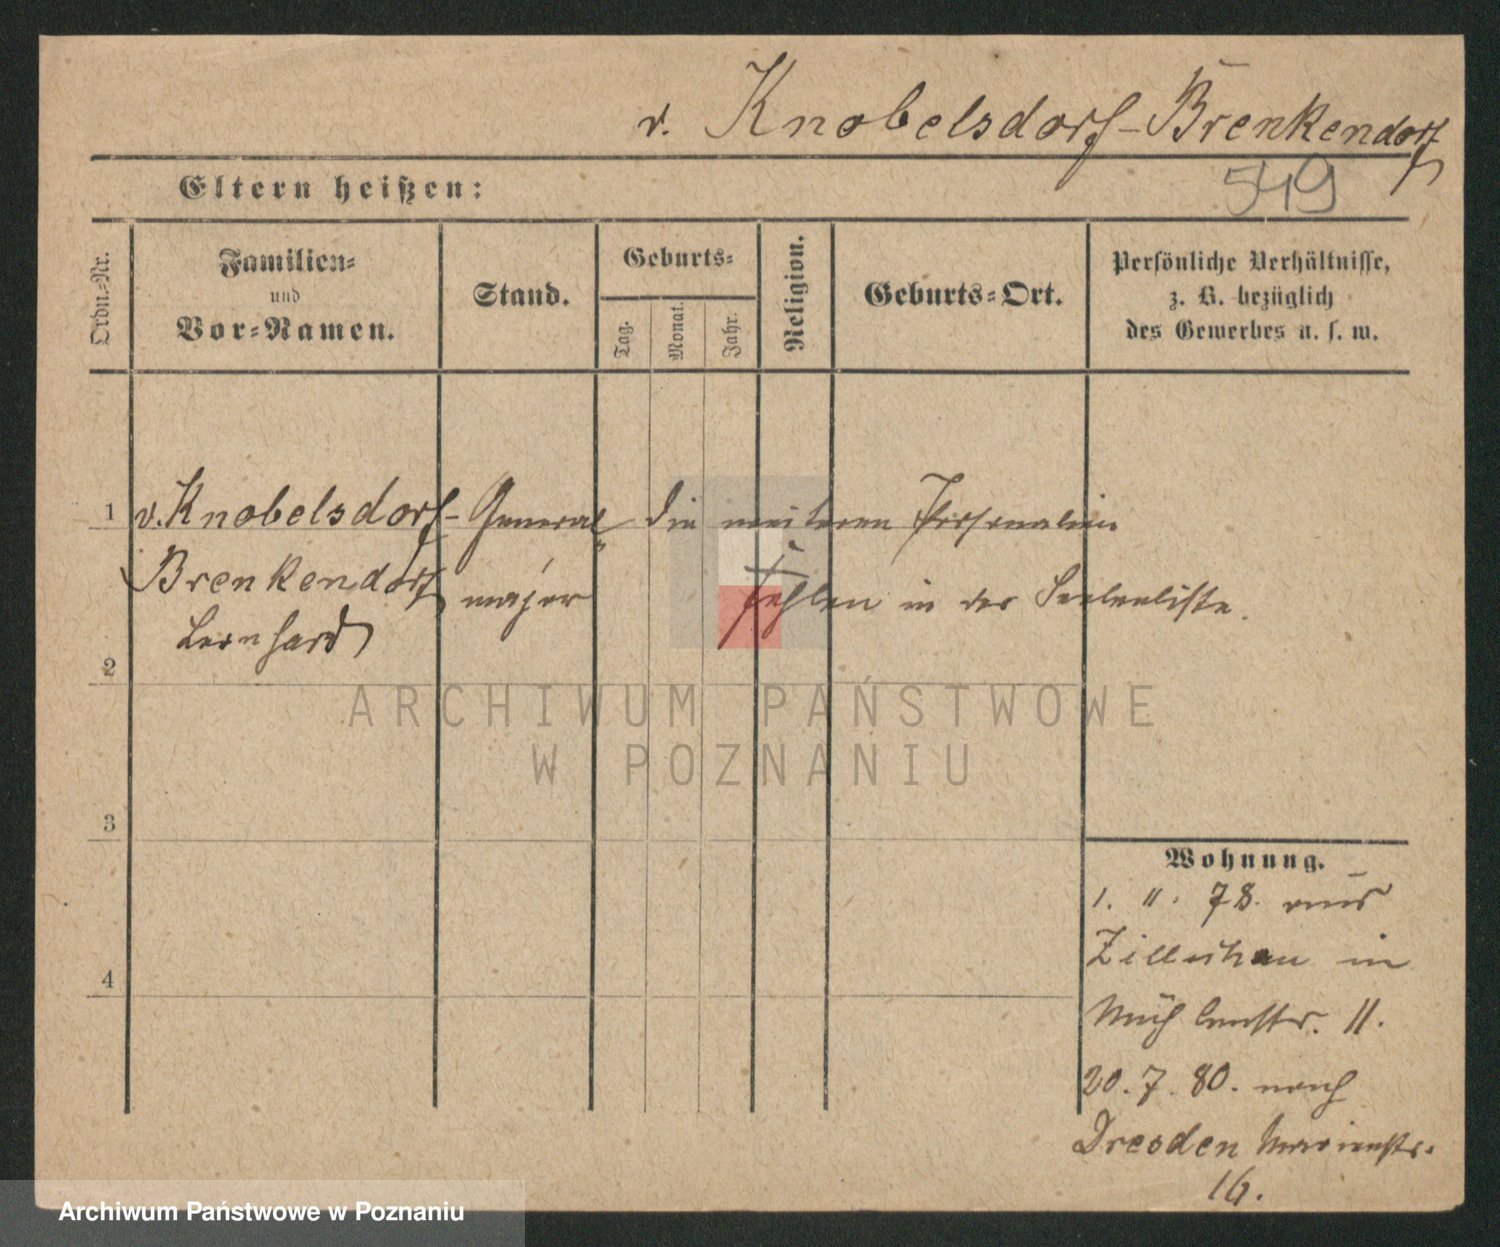 v. Knobelsdorf-Brenkendorf
549
Eltern heißen:
Ordn.-Nr.
Familien-
und
Vor-Namen.
Stand.
Geburts-
Tag.
Monat.
Jahr.
Religion.
Geburts-Ort.
Persönliche Verhältnisse,
z. B. bezüglich
des Gewerbes u. s. w.
1 v. Knobelsdorf- General- Die weiteren Personalien
Brenkendorf major fehlen in der Seelenliste.
Bernhard
2
3
4
Wohnung.
1. 11. 78. aus
Züllichau in
Mühlenstr. 11.
20. 7. 80. nach
Dresden Marienstr.
16.
ARCHIWUM PAŃSTWOWE
W POZNANIU
Archiwum Państwowe w Poznaniu